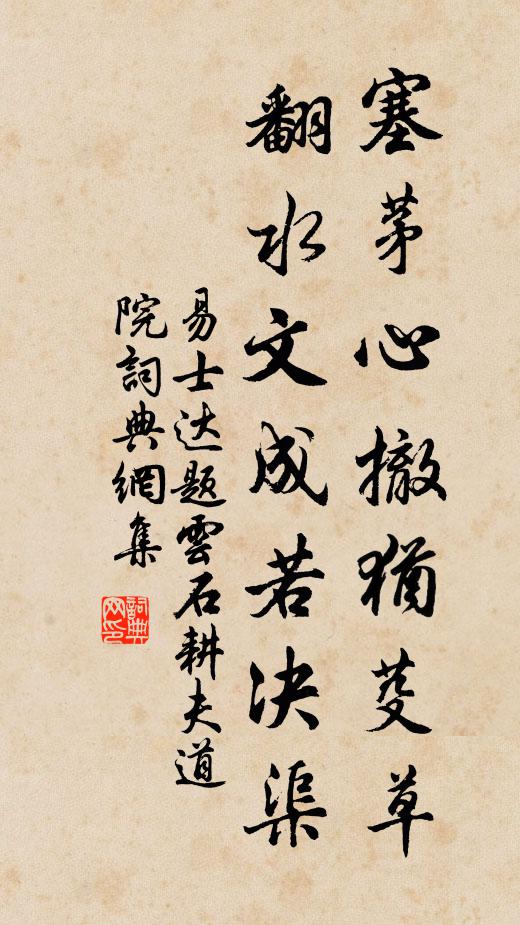 塞茅心撤猶芟草
翻水文成若决渠
易士达题雲石耕夫道
院詞典網集
詞典网印